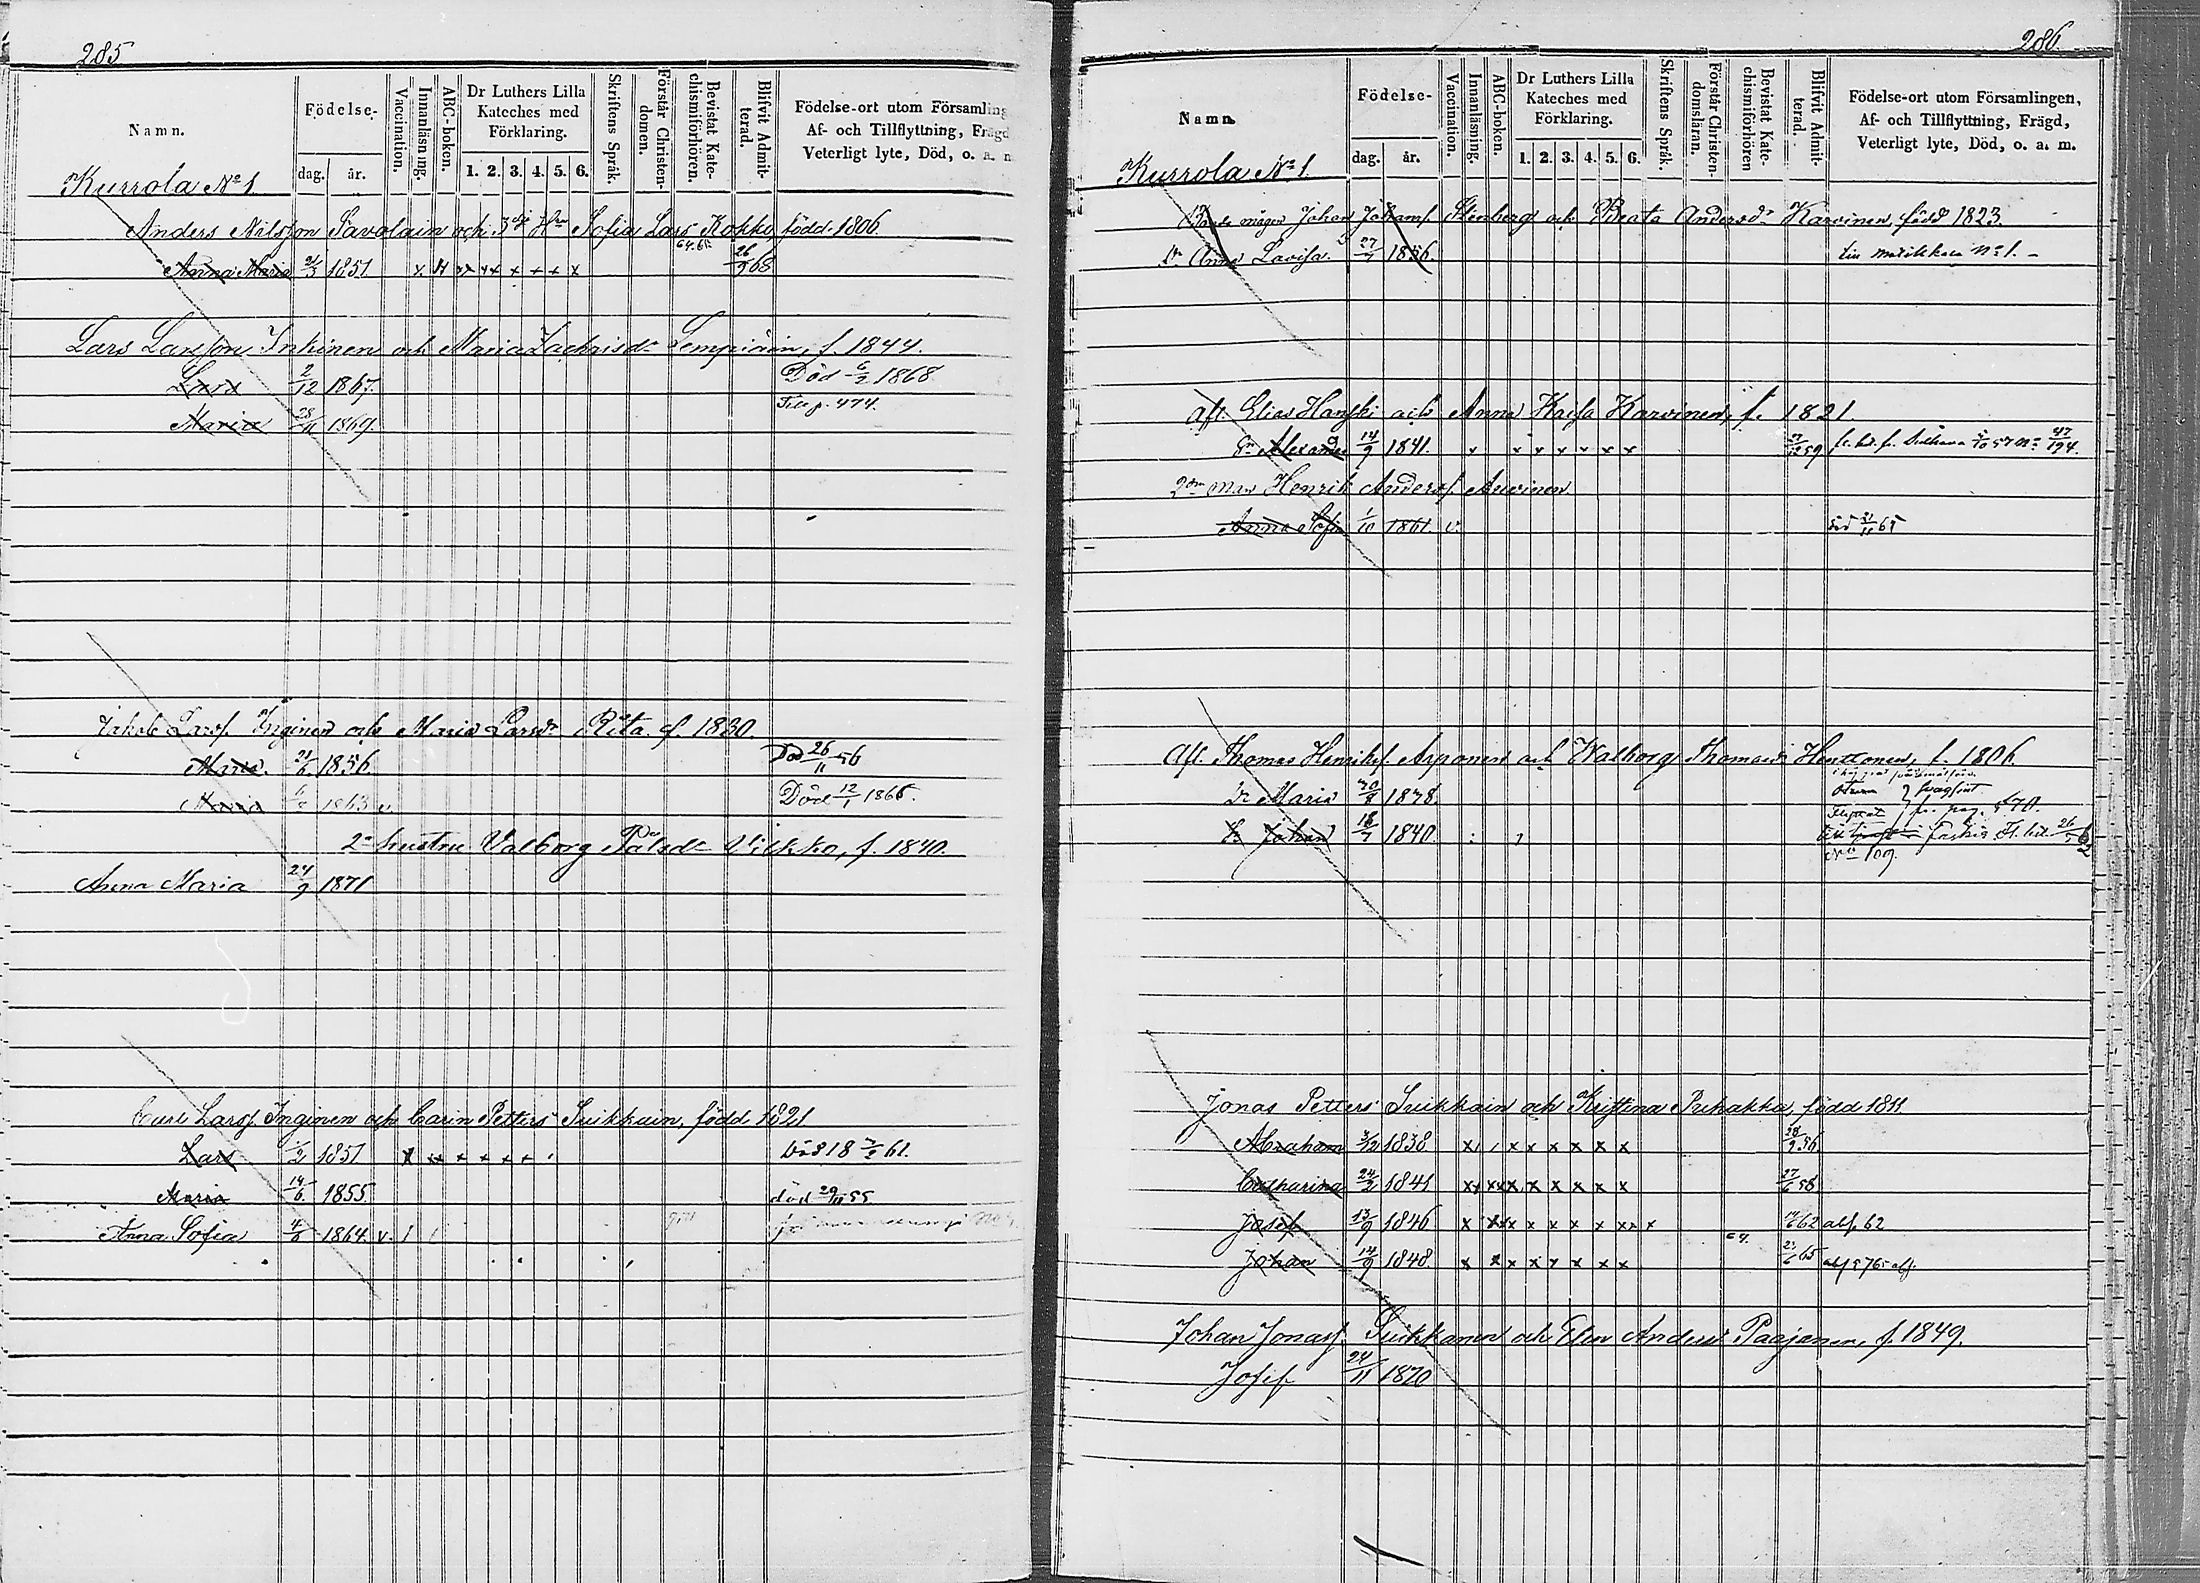 285
Namn.
Födelse-
dag. år.
Vaccination.
Innanläsning.
ABC-boken.
Dr Luthers Lilla Kateches med Förklaring.
1. 2. 3. 4. 5. 6.
Skriftens Språk.
Förstår Christen-domen.
Bevistat Kate-chismiförhören.
Blifvit Admit-terad.
Födelse-ort utom Församling
Af- och Tillflyttning, Frägd
Veterligt lyte, Död, o. a. m
Kurrola No 1.
Anders Nilsson Savolain och 3dje Hru Sofia Lars Kokko, född 1806
Anna Maria 21/3 1851. x x x x x x x 26/9 68
Lars Larsson Inkinen och Maria Zachrisdr Lempiäin, f. 1844.
Lars 2/12 1867. Död 6/2 1868
Maria 28/11 1869. Till p. 474.
Jakob Larss. Inginen och Maria Larsdr Rita f. 1830.
Maria. 21/6 1856. Död 26/11 56
Maria 1863 v. Död 12/1 1865.
2a hustru Valborg Pålsdr Vilkko, f. 1840.
Anna Maria 24/9 1871
Carl Larss. Inginen och Carin Petters Suikkain, född 1821
Lars 1/2 1851 x x x x x x Död 18 61.
Maria 14/6 1855. död 29/11 55
Anna Sofia 4/6 1864. v.
286.
Namn.
Födelse-
dag. år.
Vaccination.
Innanläsning.
ABC-boken.
Dr Luthers Lilla Kateches med Förklaring.
1. 2. 3. 4. 5. 6.
Skriftens Språk.
Förstår Christen-domsläran.
Bevistat Kate-chismiförhören
Blifvit Admit-terad.
Födelse-ort utom Församlingen,
Af- och Tillflyttning, Frägd,
Veterligt lyte, Död, o. a. m.
Kurrola No 1.
mågen Johan Johanss. Stenberg och Beata Andersdr Karvinen, född 1823.
Dr Anna Lovisa. 27/7 1856. No 1.
Afl. Elias Hanski och Anna Kaisa Karvinen, f. 1821.
Sn Alexander 14/9 1841. x x x x x x x 59 47/194.
2dra man Henrik Anderss. Auvinen
Anna Sofia 1/10 1861. v. död 21/11 65
Afl. Thomas Henrikss. Arponen och Walborg Thomasdr Henttonen, f. 1806.
Dr Maria 30/8 1838.
fr. pag. 570.
S. Johan 18/7 1840.
No 109.
Jonas Petters Suikkain och Kristina Puhakka, född 1811
Abraham 3/12 1838 x x x x x x x 28/9 56
Catharina 24/2 1841 x x x x x x x x 27/6 58
Josef 13/9 1846 x x x x x x x x x 62 abs. 62
Johan 14/9 1848. x x x x x x x x 65
Johan Jonass. Suikkanen och Elin Anders Paajanen, f. 1849.
Josef 24/11 1870